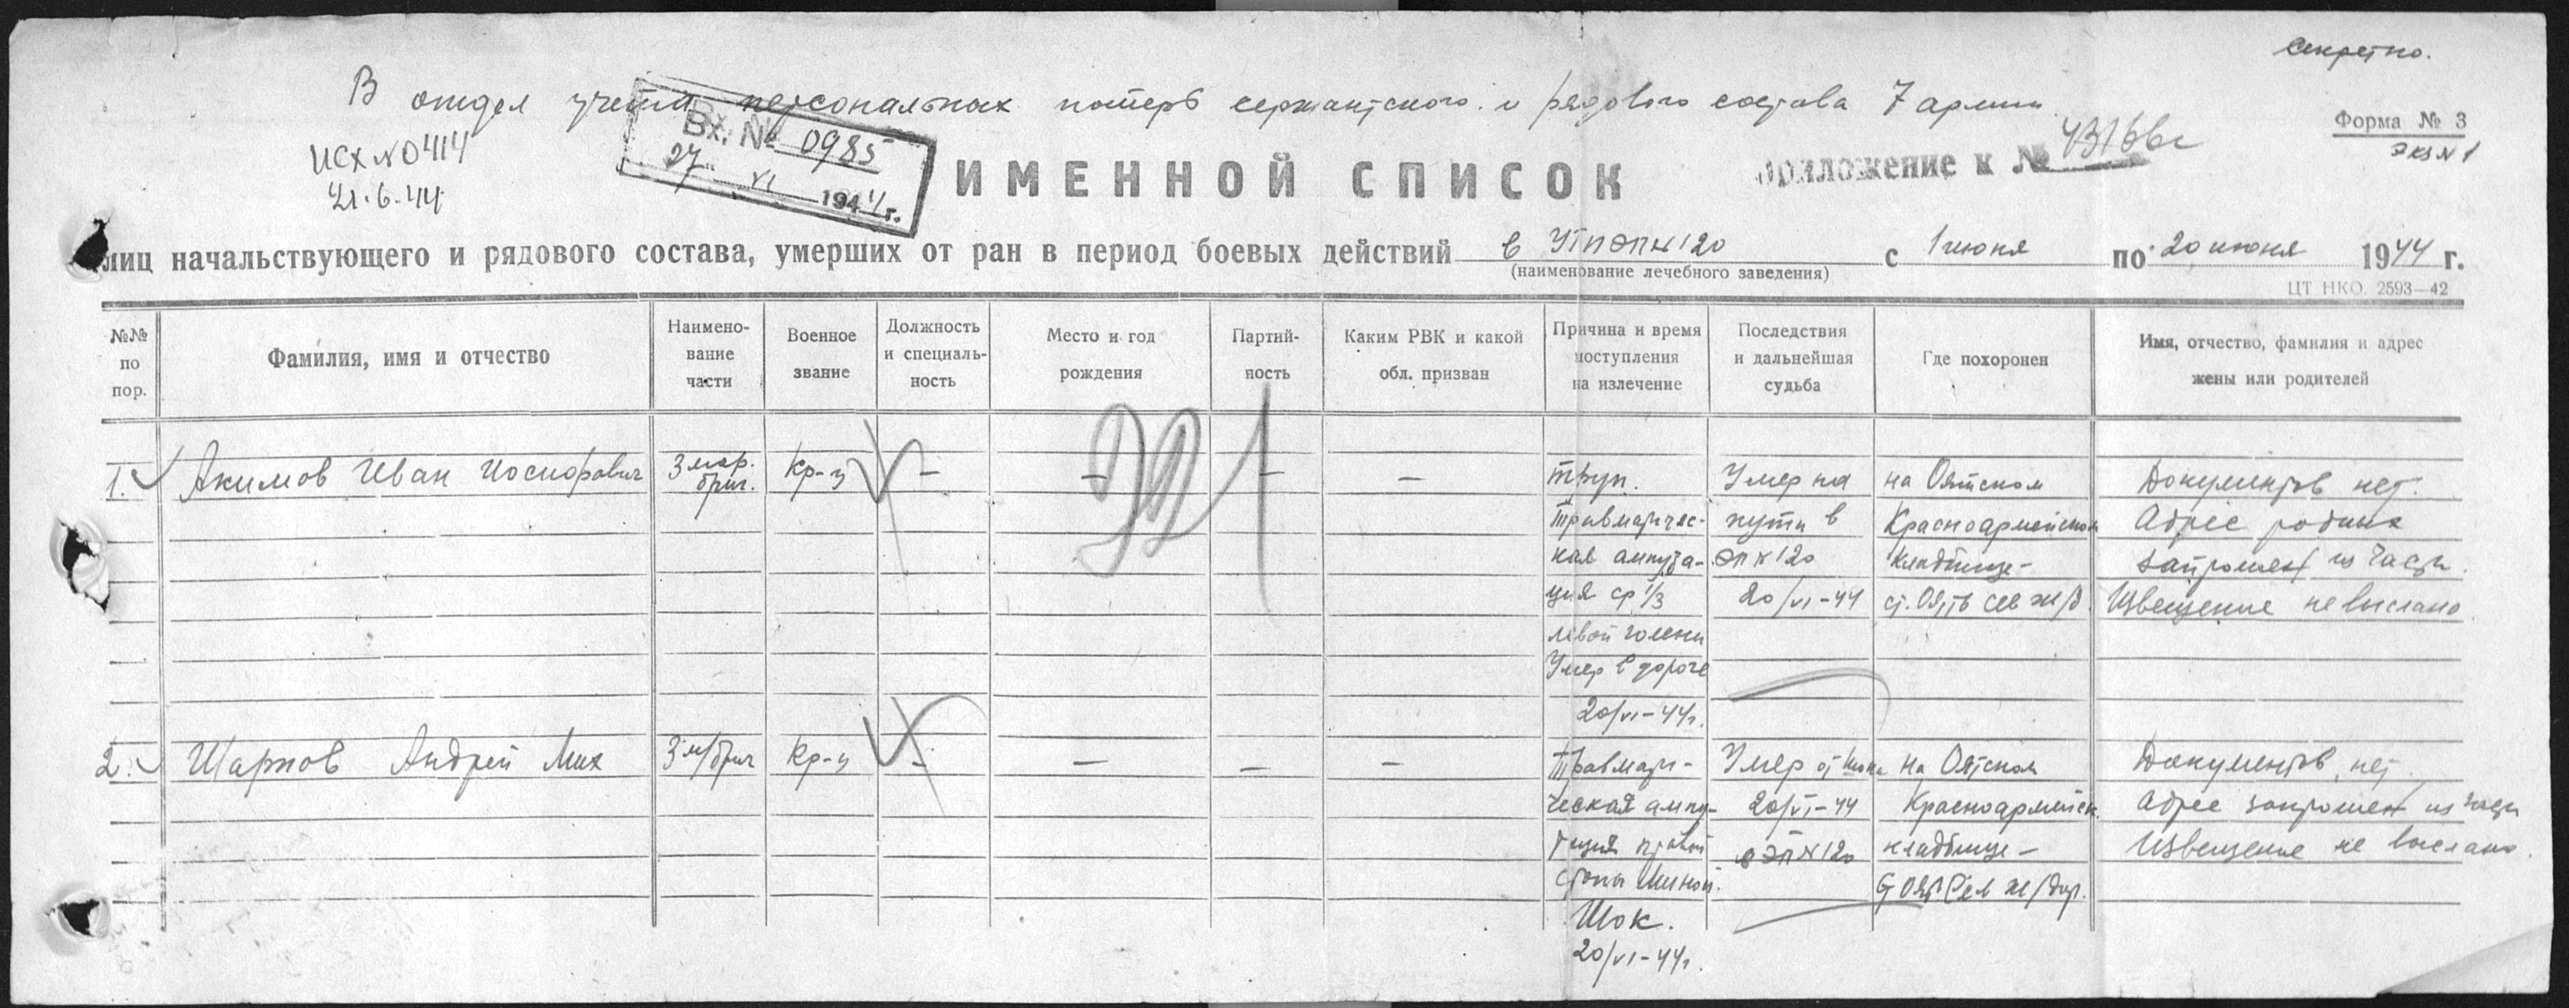 секретно.
В отдел учета персональных потерь сержантского и рядового состава 7 армии
Форма № 3
экз N 1
исх N 0414
21.6.44
Вх. № 0985
27 VI 1944 г.
ИМЕННОЙ СПИСОК
приложение к №
лиц начальствующего и рядового состава, умерших от ран в период боевых действий в УГПЭПN120 с 1 июня по 20 июня 1944 г.
(наименование лечебного заведения)
ЦТ НКО. 2593—42
№№ по пор.
Фамилия, имя и отчество
Наимено-вание части
Военное звание
Должность и специаль-ность
Место и год рождения
Партий-ность
Каким РВК и какой обл. призван
Причина и время поступления на излечение
Последствия и дальнейшая судьба
Где похоронен
Имя, отчество, фамилия и адрес жены или родителей
1. Акимов Иван Иосифович
3 мор. бриг.
Кр-ц
—
—
—
—
труп.
Травматичес-
кая ампута-
ция ср 1/3
левой голени
Умер в дороге
20/VI-44г.
Умер на
пути в
ЭПN120
20/VI-44
на Оятском
Красноармейском
кладбище-
ст. Оять сев ж/д.
Документов нет.
Адрес родных
запрошен из части.
Извещение не выслано
2. Шарков Андрей Мих
3 м/бриг
Кр-ц
—
—
—
—
Травмати-
ческая ампу-
тация правой
стопы миной.
Шок.
20/VI-44г.
Умер от шока
20/VI-44
в ЭПN120
на Оятском
Красноармейск.
кладбище-
ст Оять Сев ж/дор.
Документов нет.
Адрес запрошен из части
Извещение не выслано.